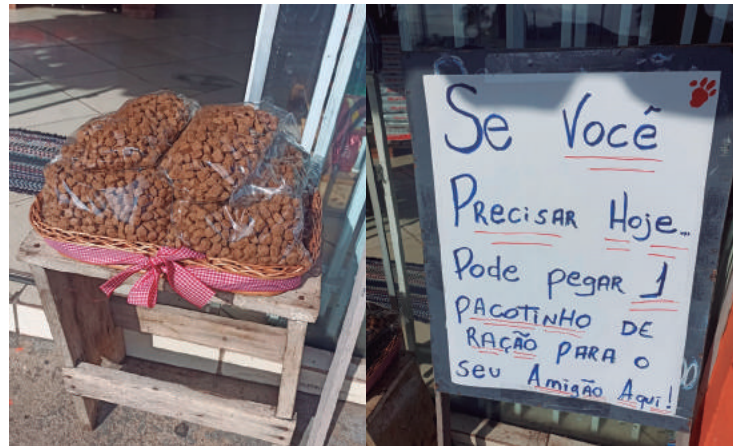 Se Você
Precisar Hoje...
Pode pegar 1
PACOTINHO DE
RAÇÃO PARA O
SEU AMIGÃO AQUI!